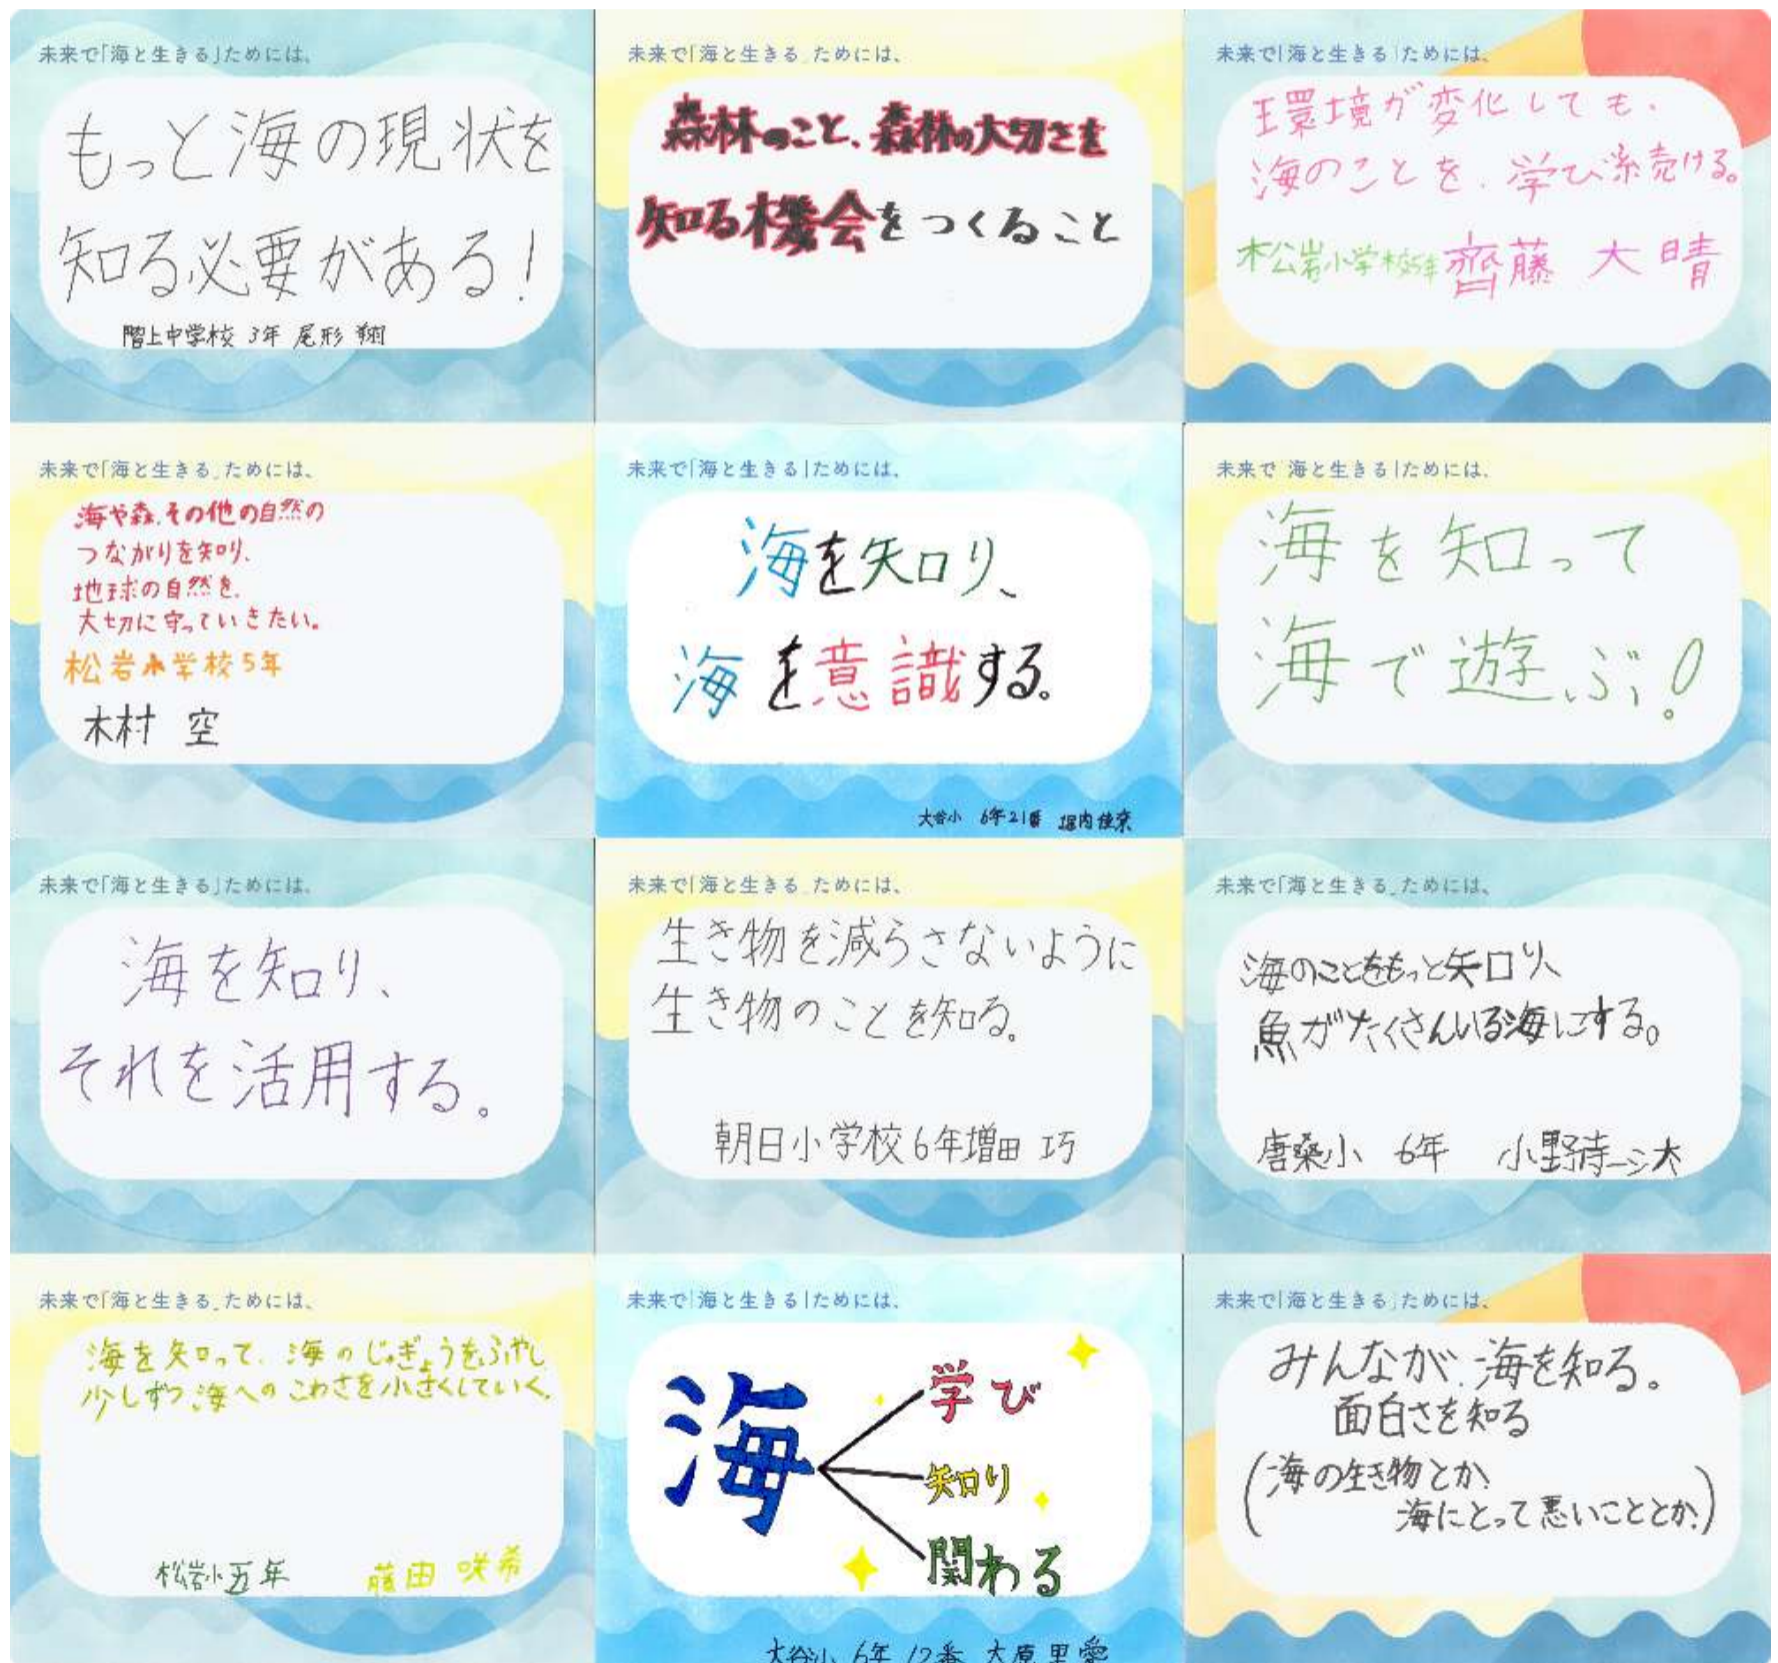 未来で「海と生きる」ためには、
もっと海の現状を
知る必要がある!
階上中学校 3年 尾形 翔
未来で「海と生きる」ためには、
森林のこと、森林の大切さを
知る機会をつくること
未来で「海と生きる」ためには、
環境が変化しても、
海のことを、学び続ける。
松岩小学校5年 齊藤 大晴
未来で「海と生きる」ためには、
海や森、その他の自然の
つながりを知り、
地球の自然を、
大切に守っていきたい。
松岩小学校5年
木村 空
未来で「海と生きる」ためには、
海を知り、
海を意識する。
大谷小 6年21番 堀内佳奈
未来で「海と生きる」ためには、
海を知って
海で遊ぶ!
未来で「海と生きる」ためには、
海を知り、
それを活用する。
未来で「海と生きる」ためには、
生き物を減らさないように
生き物のことを知る。
朝日小学校6年増田 巧
未来で「海と生きる」ためには、
海のことをもっと知り、
魚がたくさんいる海にする。
唐桑小 6年 小野寺
未来で「海と生きる」ためには、
海を知って、海のじゅぎょうをふやし
少しずつ海へのこわさを小さくしていく。
松岩小五年 藤田 咲希
未来で「海と生きる」ためには、
海
学び
知り
関わる
大谷小 6年 12番 大原里愛
未来で「海と生きる」ためには、
みんなが、海を知る。
面白さを知る
(海の生き物とか、
海にとって悪いこととか、)